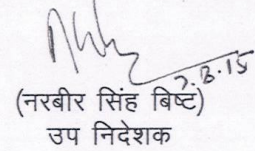 7.8.15
(नरबीर सिंह बिष्ट)
उप निदेशक